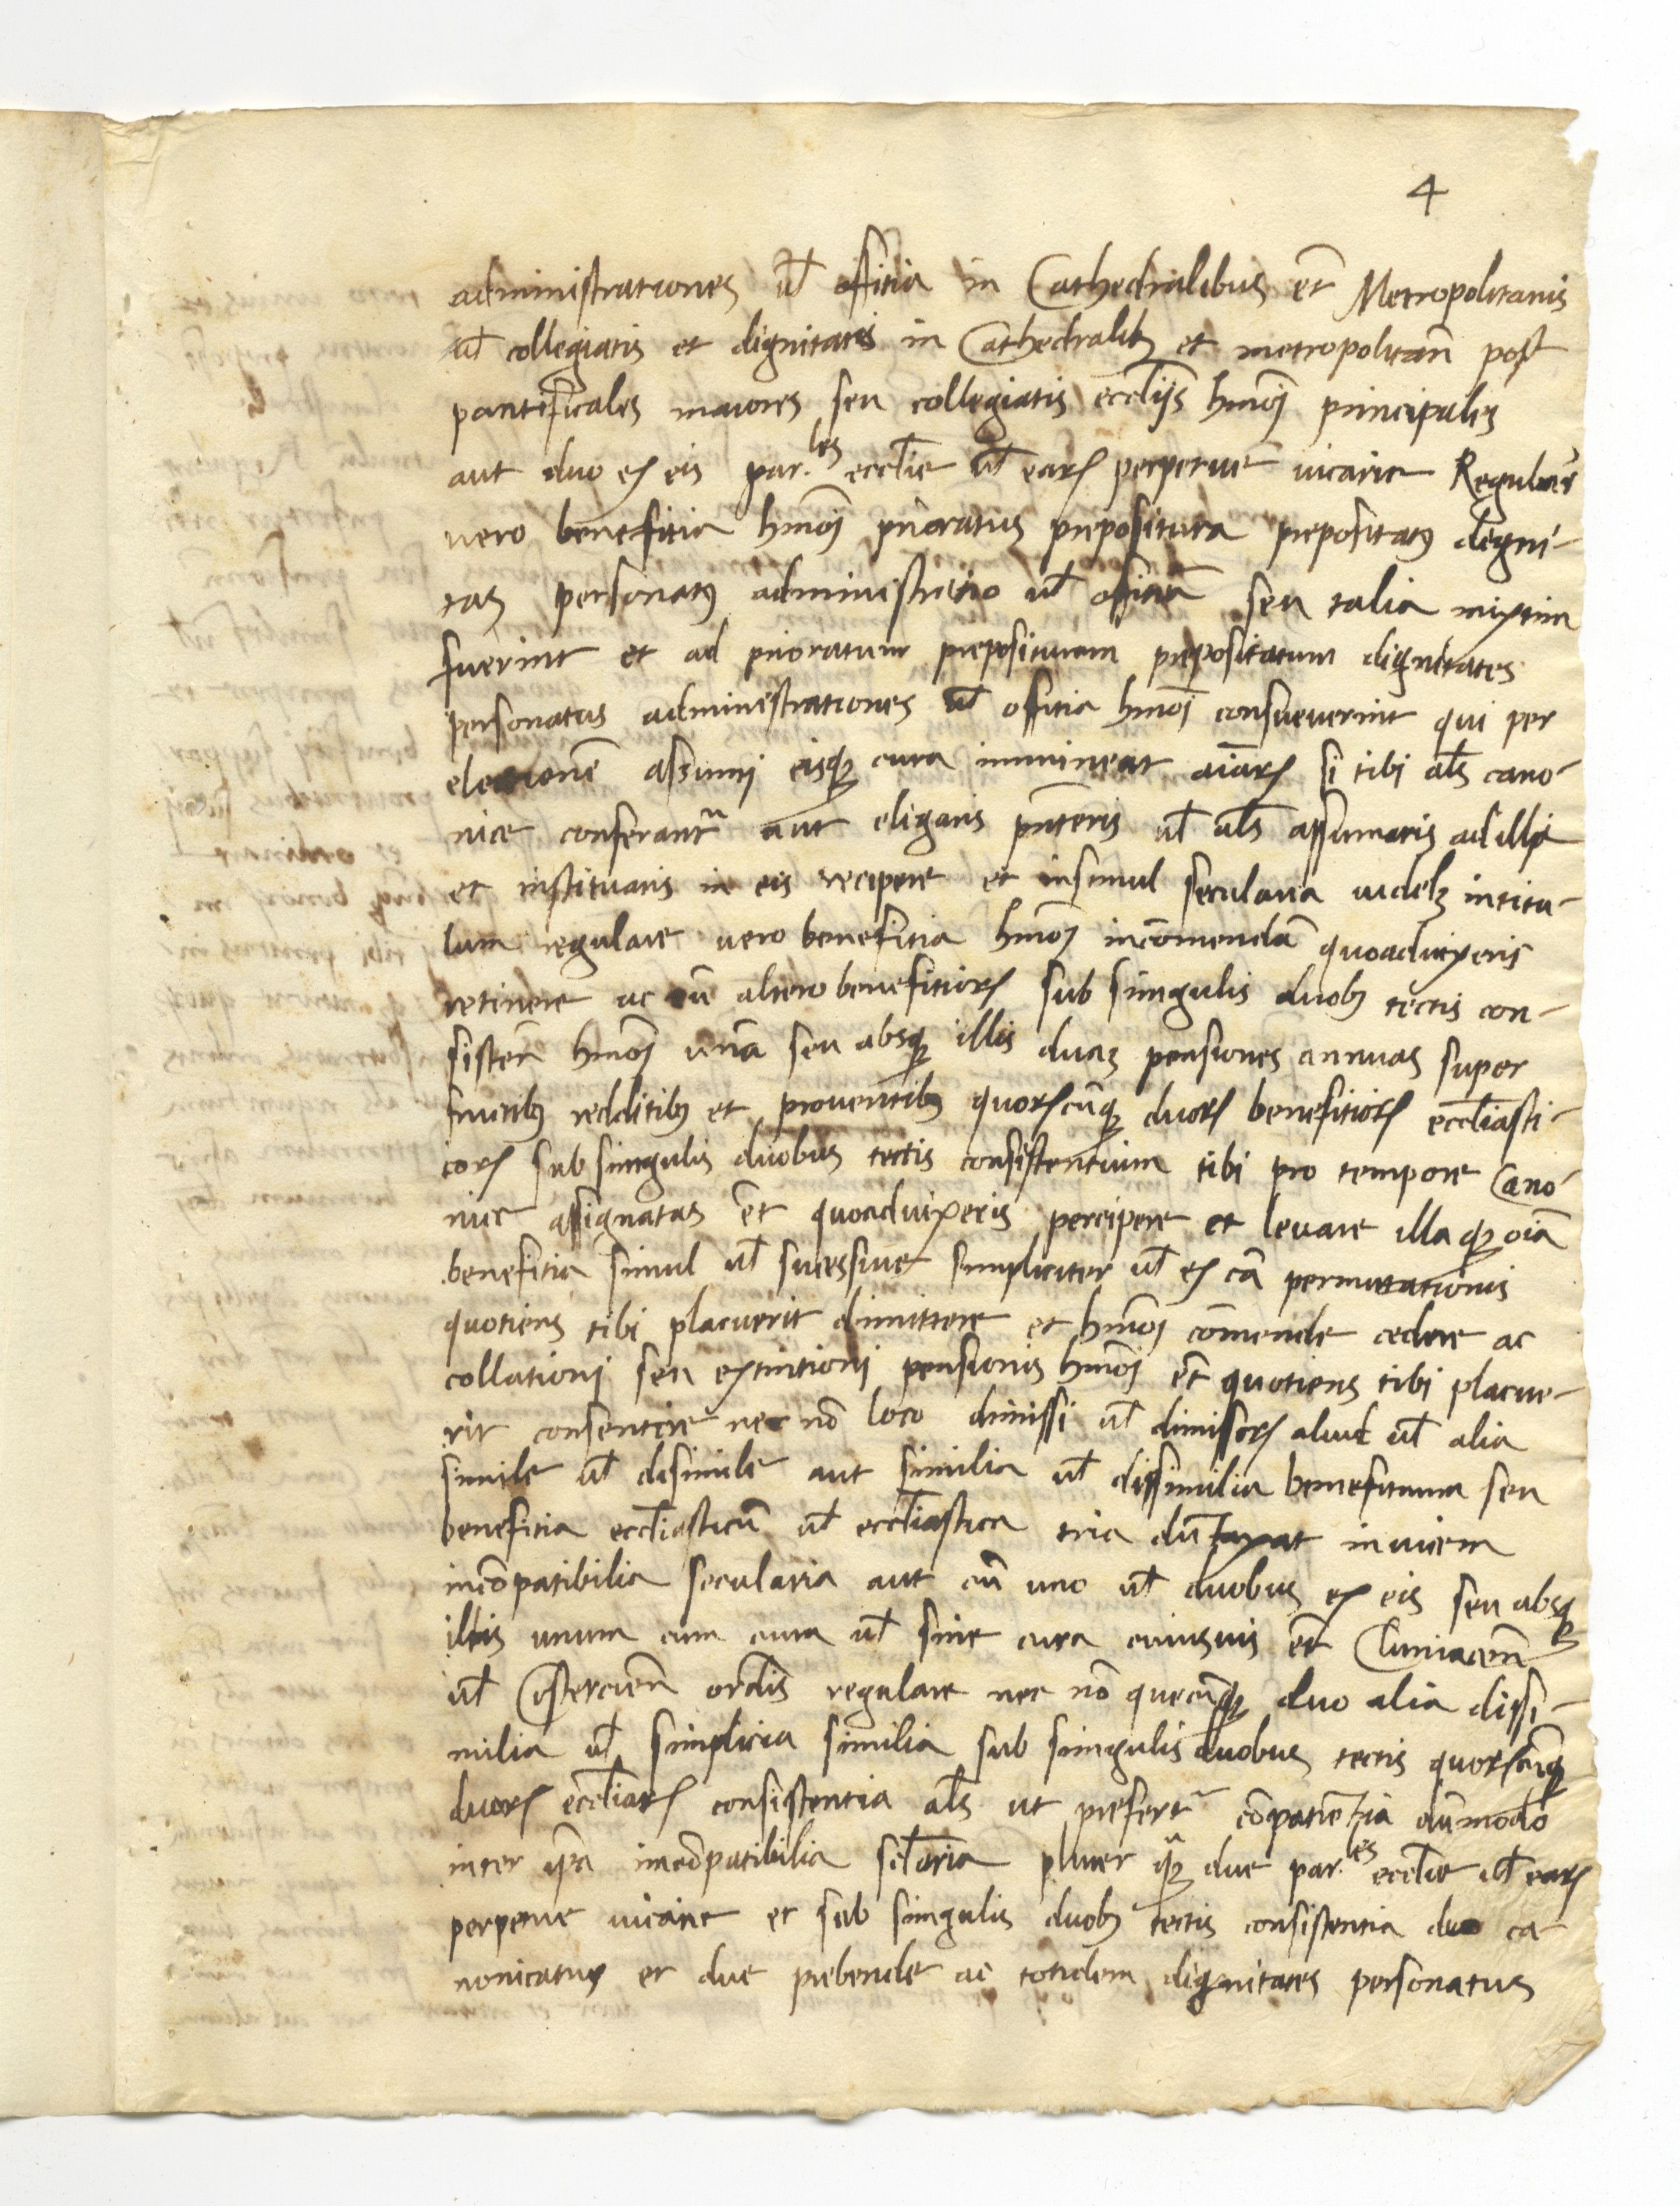 4
administrationes ul̃ offitia in Cathedralibus et̃ Metropolitanis
ul̃ collegiatis et dignitates in Cathedralibꝫ et metropolitan̄ post
pontificales maiores seu collegiatis eccl̃ijs hmōj principales
aut duo ex eis par.les eccl̃ie ul̃ earꝝ perpetue uicarie Regularia
uero benefitia hmōj prioratus prepositura prepositatꝰ digni-
tas personatꝰ administratio ul̃ offitiū seu talia mixtim
fuerint et ad prioratum preposituram prepositatum dignitates
personatus administrationes ul̃ offitia hmōj consueuerint qui per
electionē assumj eisqꝫ cura immineat aīarꝝ si tibi al̃s cano-
nice conferantʳ aut eligaris pn̄teris ul̃ al̃s assumaris ad illa
et instituaris in eis recipere et insimul secularia uidelꝫ intitu-
lum regulare uero benefitia hmōj incōmendā quoaduixeris
retinere ac cū altero benefitiorꝝ sub singulis duobꝫ tectis con-
sisten̄ hmōj unā seu absqꝫ illis duas pensiones annuas super
fructibꝫ redditibꝫ et prouentibꝫ quorꝝcūqꝫ duorꝝ benefitiorꝝ eccl̃iasti-
corꝝ sub singulis duobus tectis consistentium tibi pro tempore Cano-
nice assignatas et̃ quoaduixeris percipere et leuare illa qꝫ oīa
benefitia simul ul̃ sucessiue simpliciter ul̃ ex cā permutationis
quotiens tibi placuerit dimittere et hmōj cōmende cedere ac
collationj seu extintionj pensionis hmōj et̃ quotiens tibi placue-
rit consentire nec nō loco dimissi ul̃ dimissorꝝ aliud ul̃ alia
simile ul̃ disimile aut similia ul̃ dissimilia benefitium seu
benefitia eccl̃iasticū ul̃ eccl̃iastica tria dūtaxat inuicem
incōpatibilia secularia aut cū uno ul̃ duobus ex eis seu absqꝫ
illis unum cum cura ul̃ sine cura cuiusuis et̃ Cluniacen̄
ul̃ Cistercien̄ ordīs regulare nec nō quecūqꝫ duo alia dissi-
milia ul̃ simplicia similia sub singulis duobus tectis quorꝝcūqꝫ
duorꝝ eccl̃iarꝝ consistentia al̃s ut prefertʳ cōpatientia dūmodo
inter ip̄a incōpatibilia sc̄laria plures qꝫ due par.les eccl̃ie ul̃ earꝝ
perpetue uicarie et sub singulis duobꝫ tectis consistentia duo ca
nonicatus et due prebende ac totidem dignitates personatus